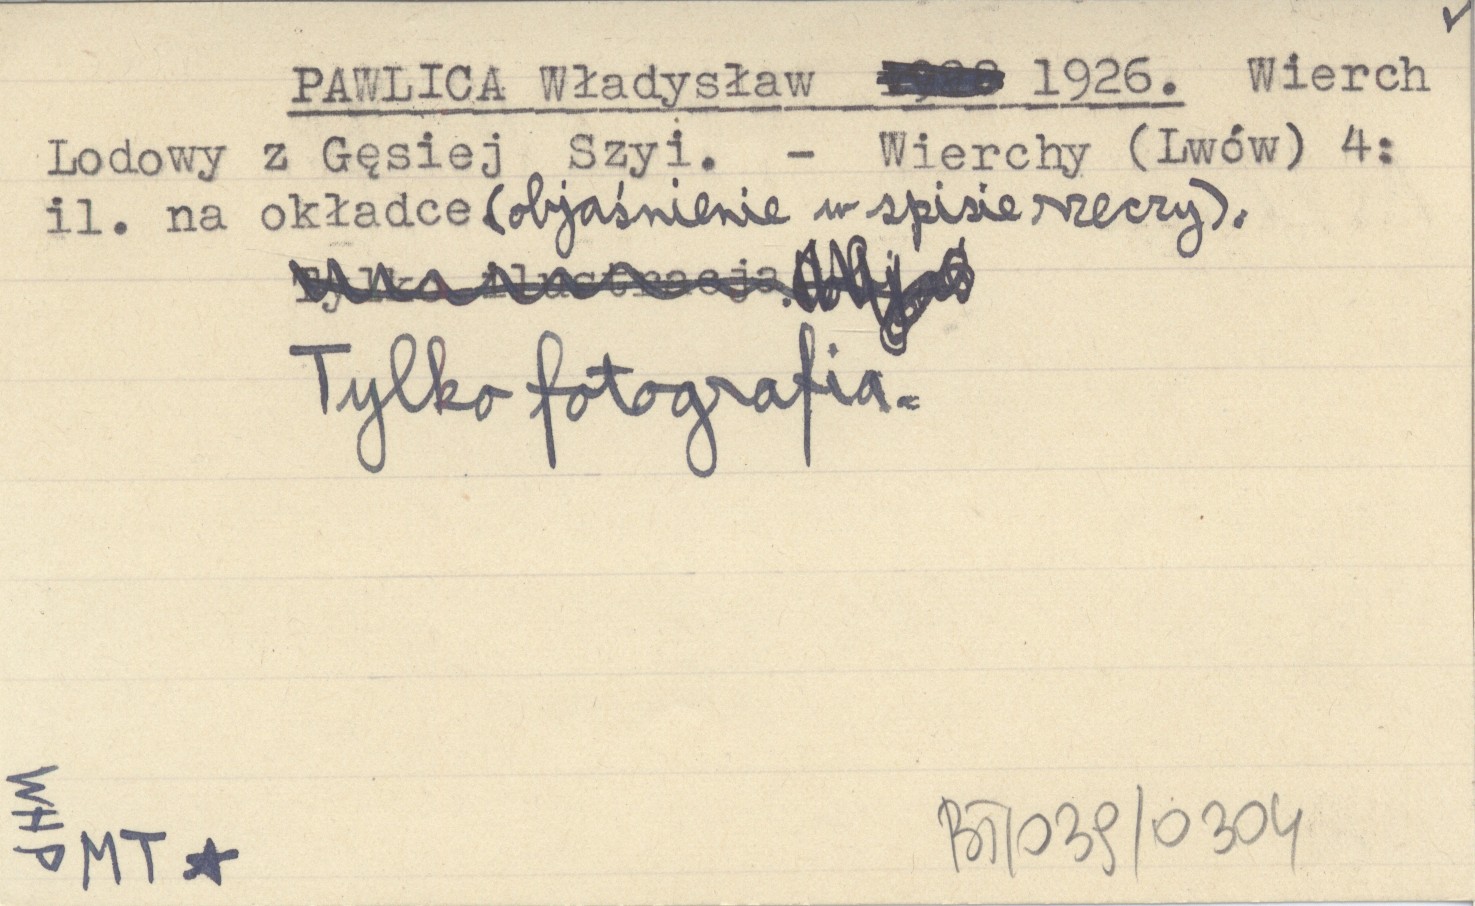 PAWLICA Władysław 1926. Wierch
Lodowy z Gęsiej Szyi. - Wierchy (Lwów) 4:
il. na okładce (objaśnienie w spisie rzeczy).
Tylko ilustracja.
Tylko fotografia.
WHP
MT ★
BT/039/0304